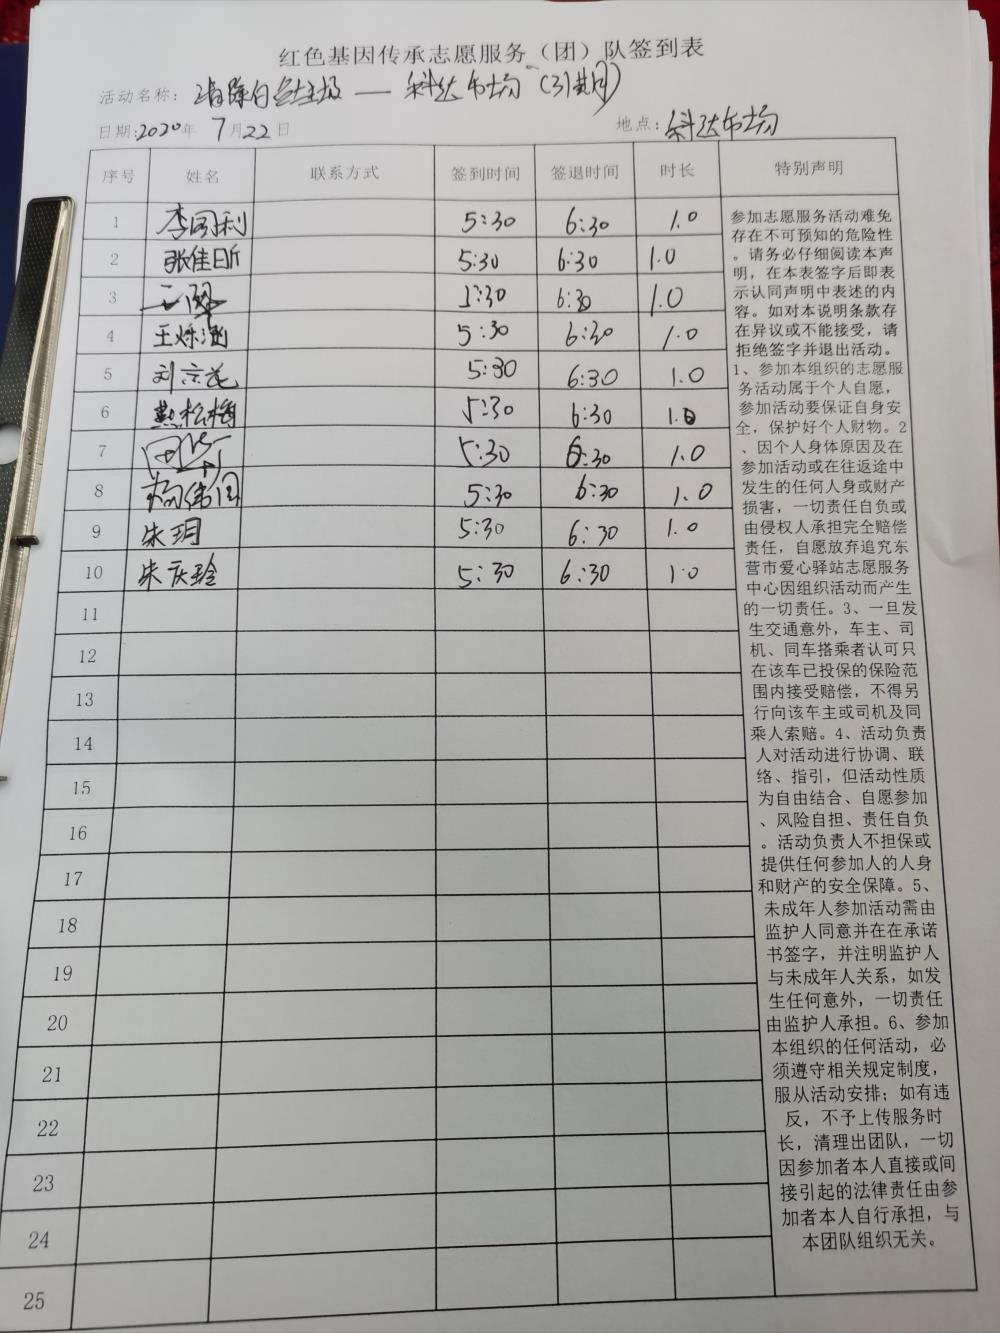 红色基因传承志愿服务（团）队签到表
活动名称： 清除白色垃圾 — 科达市场（31期）
日期:2020年 7月22日 地点:科达市场
序号 姓名 联系方式 签到时间 签退时间 时长 特别声明
1 李同利 5:30 6:30 1.0
2 张佳昕 5:30 6:30 1.0
3 1:30 6:30 1.0
4 王烁涵 5:30 6:30 1.0
5 刘京花 5:30 6:30 1.0
6 燕松梅 5:30 6:30 1.0
7 5:30 6:30 1.0
8 杨伟国 5:30 6:30 1.0
9 朱玥 5:30 6:30 1.0
10 朱庆玲 5:30 6:30 1.0
11
12
13
14
15
16
17
18
19
20
21
22
23
24
25
参加志愿服务活动难免
存在不可预知的危险性
。请务必仔细阅读本声
明，在本表签字后即表
示认同声明中表述的内
容。如对本说明条款存
在异议或不能接受，请
拒绝签字并退出活动。
1、参加本组织的志愿服
务活动属于个人自愿，
参加活动要保证自身安
全，保护好个人财物。2
、因个人身体原因及在
参加活动或在往返途中
发生的任何人身或财产
损害，一切责任自负或
由侵权人承担完全赔偿
责任，自愿放弃追究东
营市爱心驿站志愿服务
中心因组织活动而产生
的一切责任。3、一旦发
生交通意外，车主、司
机、同车搭乘者认可只
在该车已投保的保险范
围内接受赔偿，不得另
行向该车主或司机及同
乘人索赔。4、活动负责
人对活动进行协调、联
络、指引，但活动性质
为自由结合、自愿参加
、风险自担、责任自负
。活动负责人不担保或
提供任何参加人的人身
和财产的安全保障。5、
未成年人参加活动需由
监护人同意并在在承诺
书签字，并注明监护人
与未成年人关系，如发
生任何意外，一切责任
由监护人承担。6、参加
本组织的任何活动，必
须遵守相关规定制度，
服从活动安排；如有违
反，不予上传服务时
长，清理出团队，一切
因参加者本人直接或间
接引起的法律责任由参
加者本人自行承担，与
本团队组织无关。